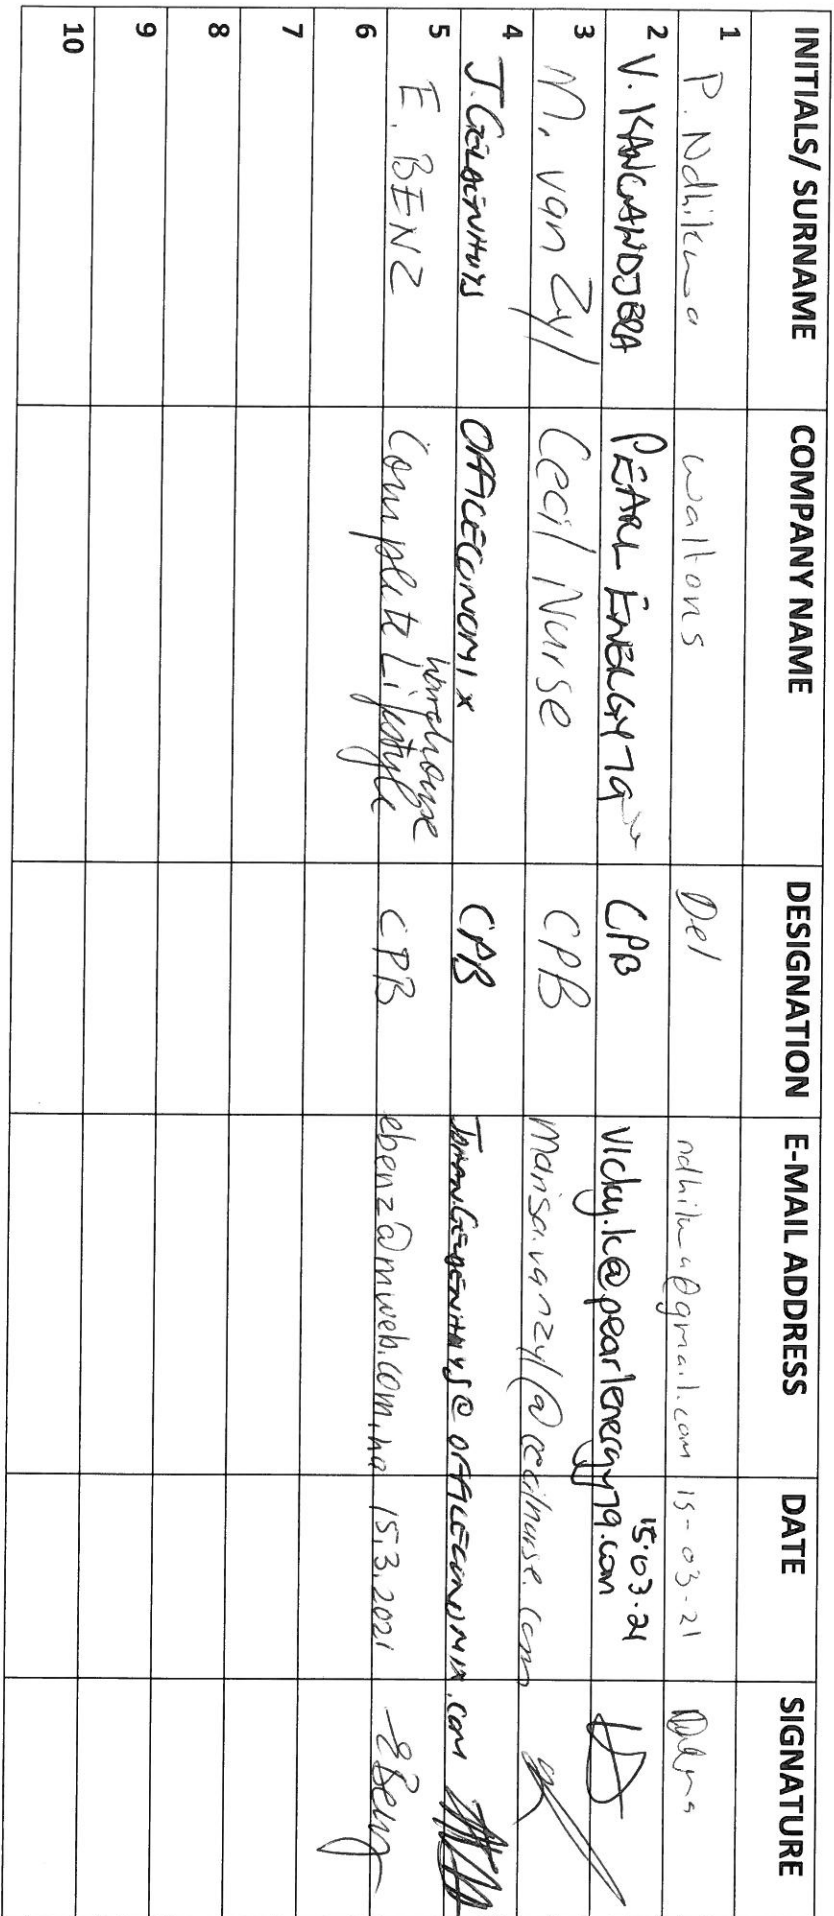 INITIALS/ SURNAME COMPANY NAME DESIGNATION E-MAIL ADDRESS DATE SIGNATURE
1 P. Ndhikwa waltons Del 15-03-21
2 V. KANGANDJERA PEARL ENERGY 79 CPB vicky.k@pearlenergy79.com 15.03.21
3 M. van Zyl Cecil Nurse CPB marisa.vanzyl@cecilnurse.com
4 J. GELDENHUYS OFFICECONOMIX CPB JOHAN.GELDENHUYS@OFFICECONOMIX.COM
5 E. BENZ Complete Lifestyle warehouse CPB ebenz@mweb.com.na 15.3.2021 EBenz
6
7
8
9
10